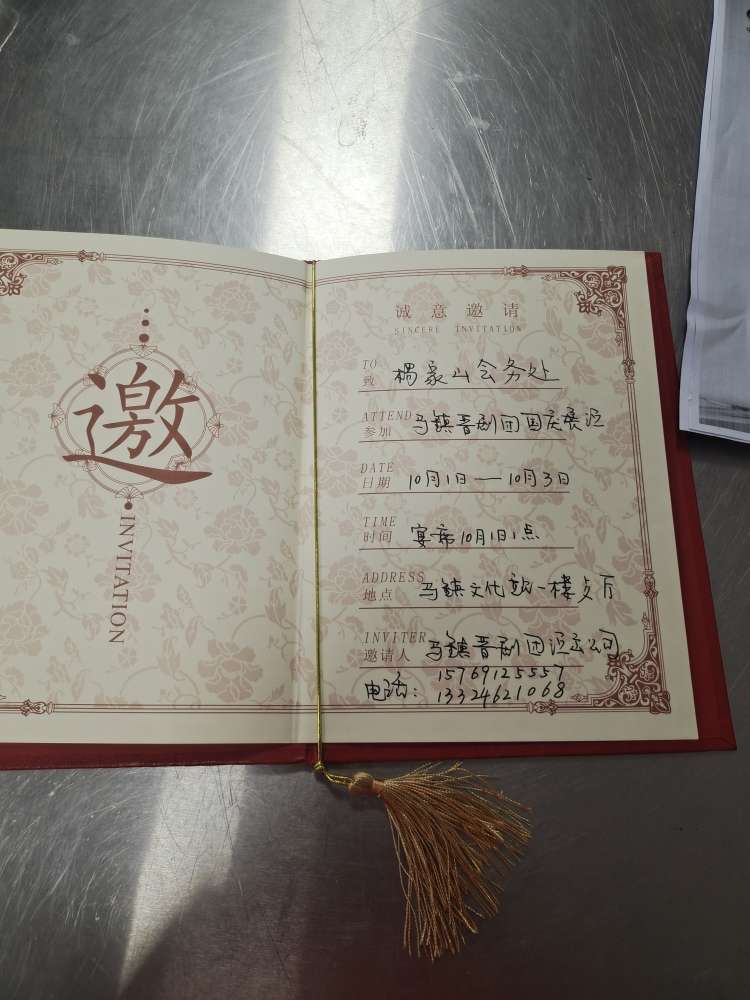 邀
INVITATION
诚意邀请
SINCERE INVITATION
TO
致 象山会务处
ATTEND
参加 马镇晋剧团国庆展
DATE
日期 10月1日——10月3日
TIME
时间 宴席10月1日1点
ADDRESS
地点 马镇文化站一楼
INVITER
邀请人 马镇晋剧团 公司
电话: 15769125557
13324621068